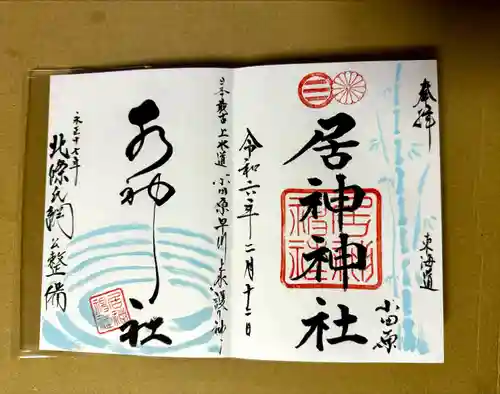 奉拝
東海道
小田原
居神神社
令和六年二月十二日
日本最古上水道 小田原早川上水護り神
水神社
永正十七年
北條氏綱公整備